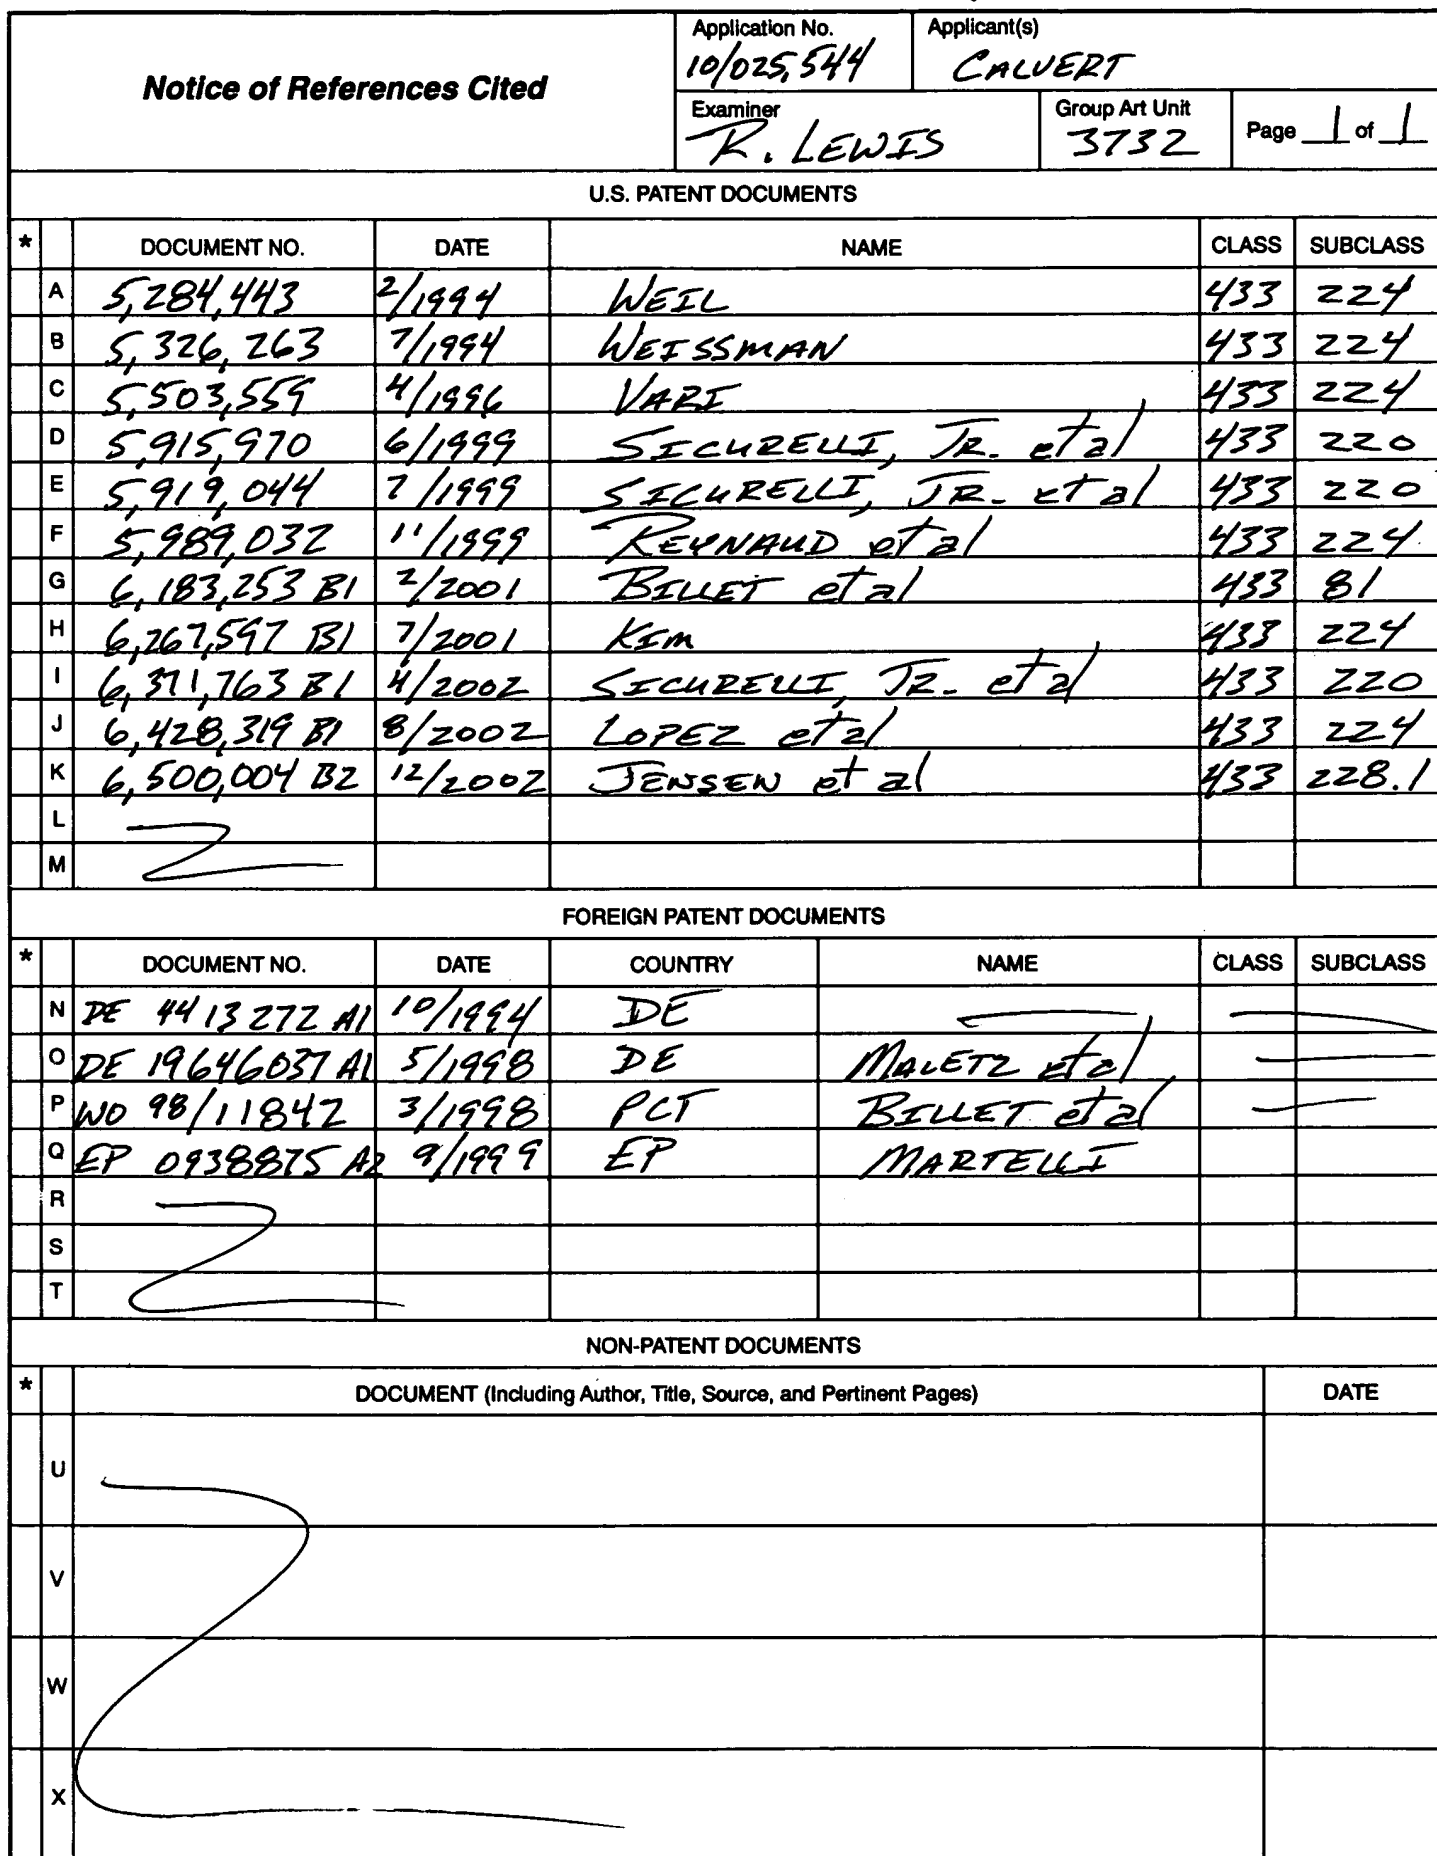 Notice of References Cited
Application No. 10/025,544
Applicant(s) CALVERT
Examiner R. LEWIS
Group Art Unit 3732
Page 1 of 1
U.S. PATENT DOCUMENTS
* DOCUMENT NO. DATE NAME CLASS SUBCLASS
A 5,284,443 2/1994 WEIL 433 224
B 5,326,263 7/1994 WEISSMAN 433 224
C 5,503,559 4/1996 VARI 433 224
D 5,915,970 6/1999 SICURELLI, JR. et al 433 220
E 5,919,044 7/1999 SICURELLI, JR. et al 433 220
F 5,989,032 11/1999 REYNAUD et al 433 224
G 6,183,253 B1 2/2001 BILLET et al 433 81
H 6,267,597 B1 7/2001 KIM 433 224
I 6,371,763 B1 4/2002 SICURELLI, JR. et al 433 220
J 6,428,319 B1 8/2002 LOPEZ et al 433 224
K 6,500,004 B2 12/2002 JENSEN et al 433 228.1
L
M
FOREIGN PATENT DOCUMENTS
* DOCUMENT NO. DATE COUNTRY NAME CLASS SUBCLASS
N DE 4413272 A1 10/1994 DE
O DE 19646037 A1 5/1998 DE MALETZ et al
P WO 98/11842 3/1998 PCT BILLET et al
Q EP 0938875 A2 9/1999 EP MARTELLI
R
S
T
NON-PATENT DOCUMENTS
* DOCUMENT (Including Author, Title, Source, and Pertinent Pages) DATE
U
V
W
X